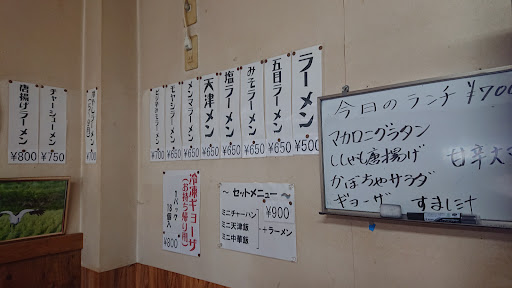 ラーメン
¥500
五目ラーメン
¥650
みそラーメン
¥650
塩ラーメン
¥650
天津メン
¥650
メンマラーメン
¥650
モヤシラーメン
¥650
¥700
¥700
チャーシューメン
¥750
唐揚げラーメン
¥800
冷凍ギョーザ
(お持ち帰り用)
1パック
18個入
¥800
～セットメニュー～
ミニチャーハン
ミニ天津飯
ミニ中華飯
¥900
+ラーメン
今日のランチ ¥700
マカロニグラタン
ししゃも唐揚げ
かぼちゃサラダ
ギョーザ すまし汁